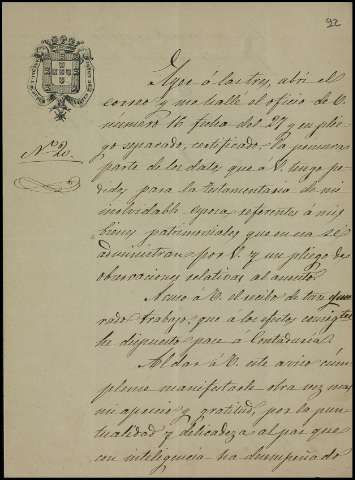 92
Nº 20.
Ayer á las tres, abrí el
correo y me hallé el oficio de V.
número 16 fecha del 27 y en plie-
go separado, certificado, la primera
parte de los datos que á V. tengo pe-
didos para la testamentaria de mi
inolvidable esposa referentes á mis
bienes patrimoniales que en esa se
administran por V. y un pliego de
observaciones relativas al asunto.
Acuso á V. el recibo de tan
trabajo, que á los efectos
he dispuesto pase á Contaduría.
Al dar á V. este aviso cúm-
pleme manifestarle otra vez mas
mi aprecio y gratitud, por la pun-
tualidad y delicadeza al par que
con inteligencia ha desempeñado